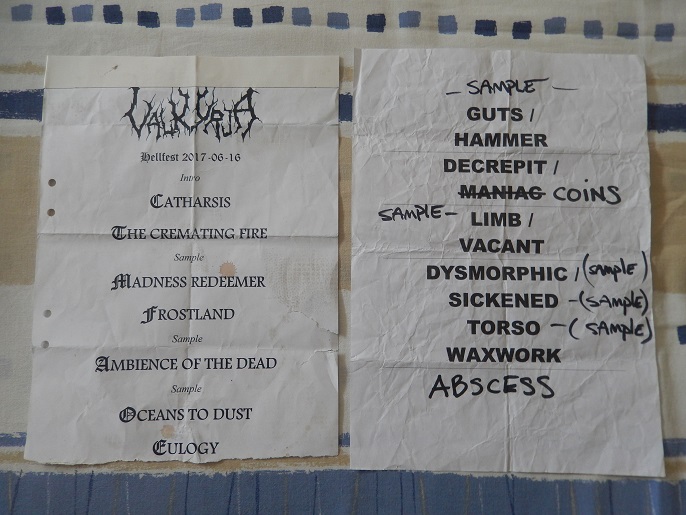 VALKYRJA
Hellfest 2017-06-16
Intro
CATHARSIS
THE CREMATING FIRE
Sample
MADNESS REDEEMER
FROSTLAND
Sample
AMBIENCE OF THE DEAD
Sample
OCEANS TO DUST
EULOGY
- SAMPLE -
GUTS /
HAMMER
DECREPIT /
MANIAC COINS
SAMPLE - LIMB /
VACANT
DYSMORPHIC / (SAMPLE)
SICKENED - (SAMPLE)
TORSO - (SAMPLE)
WAXWORK
ABSCESS